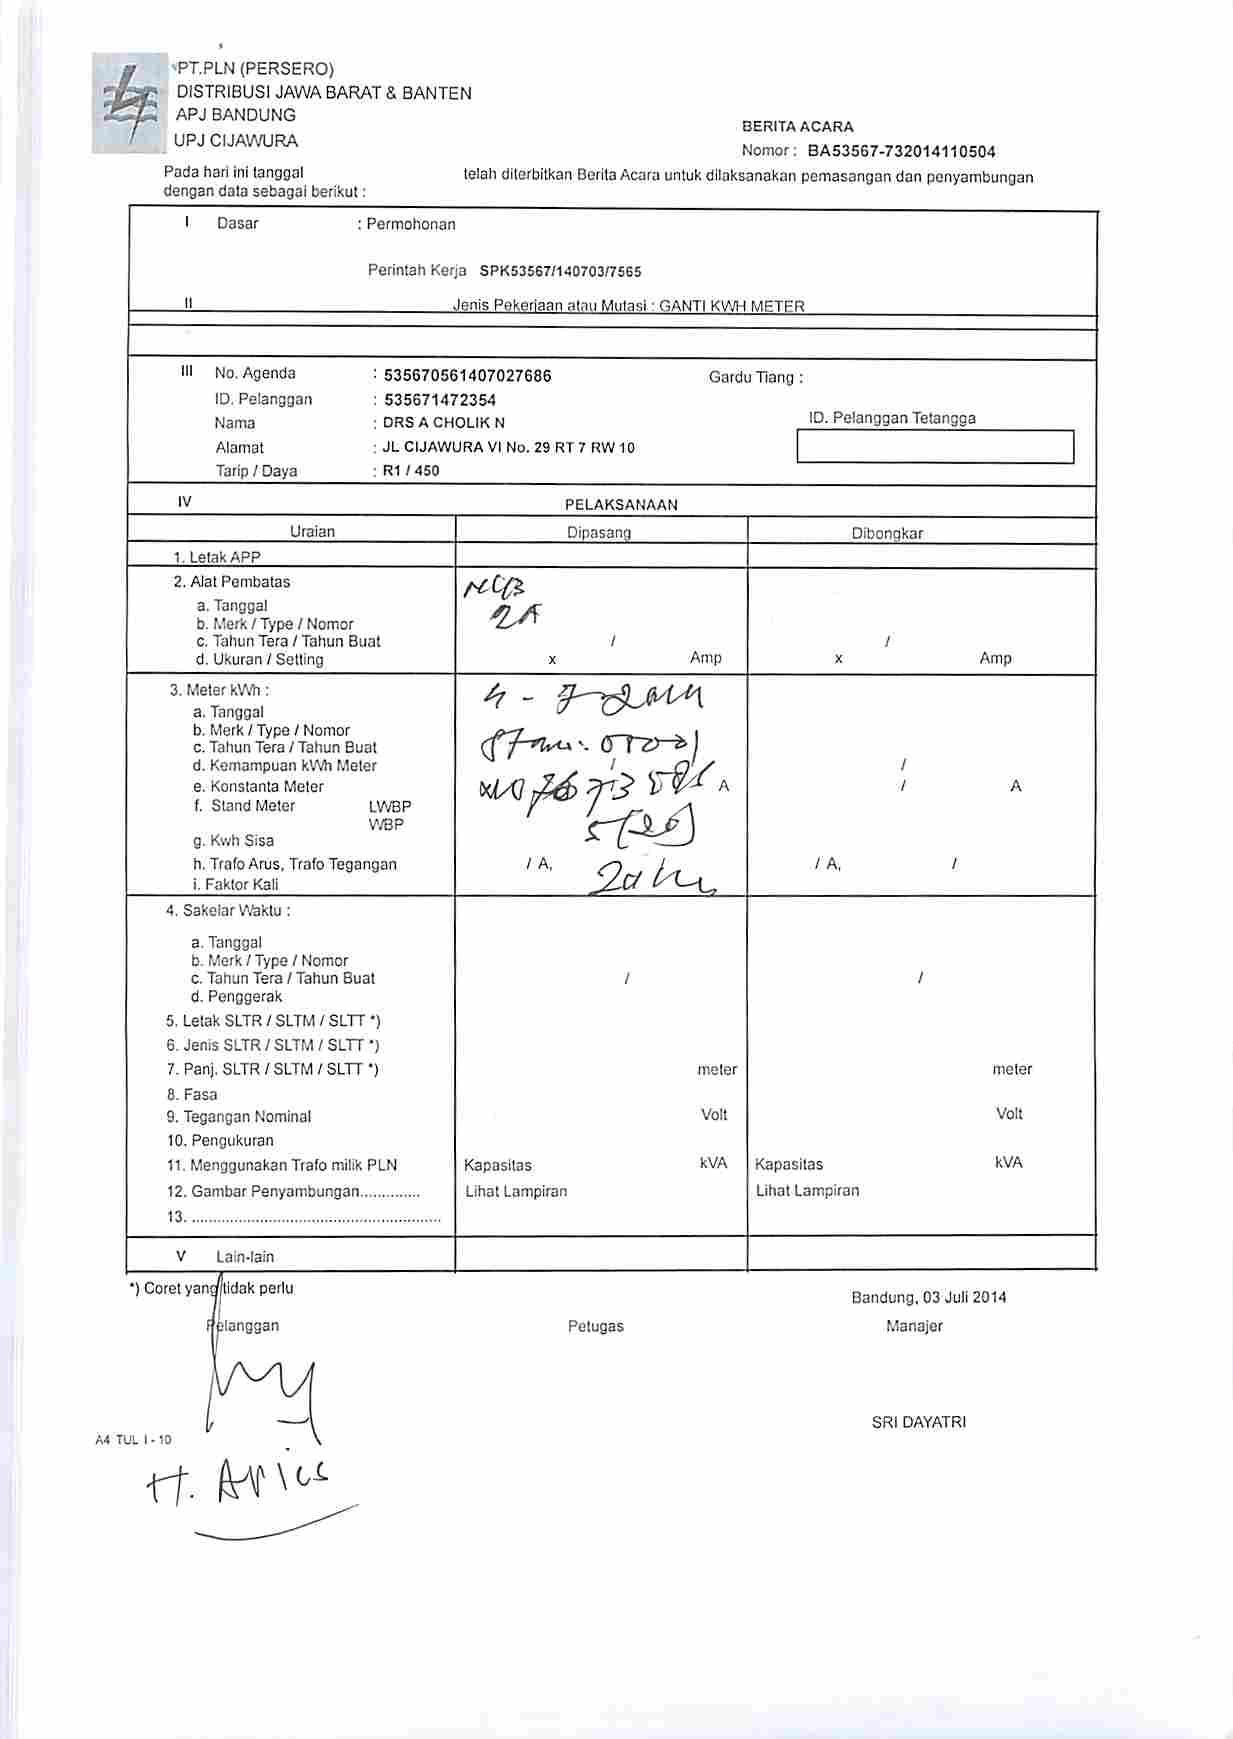 PT.PLN (PERSERO)
DISTRIBUSI JAWA BARAT & BANTEN
APJ BANDUNG
UPJ CIJAWURA
BERITA ACARA
Nomor : BA53567-732014110504
Pada hari ini tanggal telah diterbitkan Berita Acara untuk dilaksanakan pemasangan dan penyambungan
dengan data sebagai berikut :
I Dasar : Permohonan
Perintah Kerja SPK53567/140703/7565
II Jenis Pekerjaan atau Mutasi : GANTI KWH METER
III No. Agenda : 535670561407027686 Gardu Tiang :
ID. Pelanggan : 535671472354
Nama : DRS A CHOLIK N ID. Pelanggan Tetangga
Alamat : JL CIJAWURA VI No. 29 RT 7 RW 10
Tarip / Daya : R1 / 450
IV PELAKSANAAN
Uraian Dipasang Dibongkar
1. Letak APP
2. Alat Pembatas MCB
a. Tanggal 2A
b. Merk / Type / Nomor
c. Tahun Tera / Tahun Buat / /
d. Ukuran / Setting x Amp x Amp
3. Meter kWh : 4 - 7 2014
a. Tanggal
b. Merk / Type / Nomor
c. Tahun Tera / Tahun Buat
d. Kemampuan kWh Meter / /
e. Konstanta Meter A / A
f. Stand Meter LWBP
WBP 5(20)
g. Kwh Sisa
h. Trafo Arus, Trafo Tegangan / A, / A, /
i. Faktor Kali
4. Sakelar Waktu :
a. Tanggal
b. Merk / Type / Nomor
c. Tahun Tera / Tahun Buat / /
d. Penggerak
5. Letak SLTR / SLTM / SLTT *)
6. Jenis SLTR / SLTM / SLTT *)
7. Panj. SLTR / SLTM / SLTT *) meter meter
8. Fasa
9. Tegangan Nominal Volt Volt
10. Pengukuran
11. Menggunakan Trafo milik PLN Kapasitas kVA Kapasitas kVA
12. Gambar Penyambungan............. Lihat Lampiran Lihat Lampiran
13. ..........................................................
V Lain-lain
*) Coret yang tidak perlu
Bandung, 03 Juli 2014
Pelanggan Petugas Manajer
SRI DAYATRI
A4 TUL I - 10
H. Aries